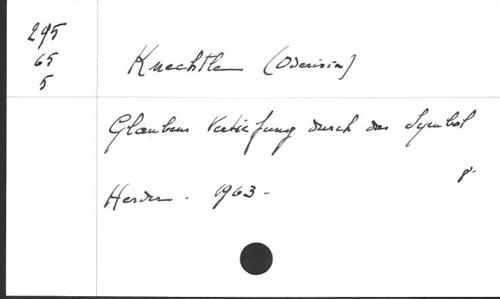 295
65
5
Knechtle (Oderisia)
Glaubens Vertiefung durch das Symbol
Herder - 1963 -